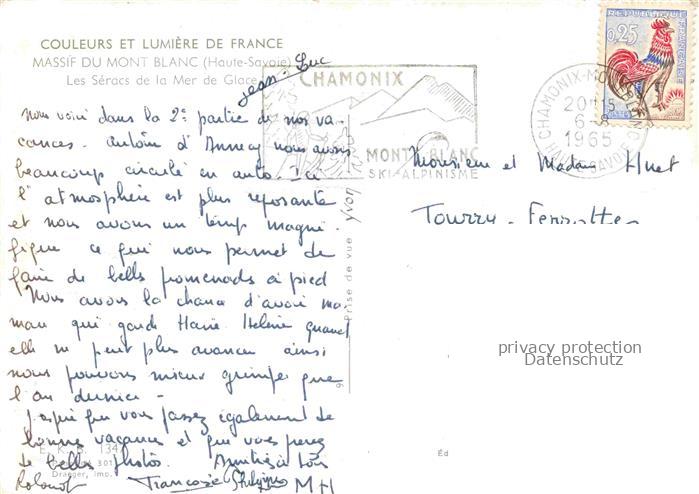 COULEURS ET LUMIÈRE DE FRANCE
MASSIF DU MONT BLANC (Haute-Savoie)
Les Séracs de la Mer de Glace
Jean-Luc
Nous voici dans la 2e partie de nos va-
cances. autour d'Annecy nous avons
beaucoup circulé en auto. Ici
l'atmosphère est plus reposante
et nous avons un temps magni-
fique ce qui nous permet de
faire de belles promenades à pied
Nous avons la chance d'avoir ma-
man qui garde Marie Hélène quand
elle ne peut plus avancer ainsi
nous pouvons mieux grimper que
l'an dernier -
J'espère que vous passez également de
bonnes vacances et que vous ferez
de belles photos. Amitiés à tous
Roland Françoise MH
E. K. B. 1347
Draeger, Imp.
Prise de vue Yvon
Éd
CHAMONIX
MONT-BLANC
SKI-ALPINISME
CHAMONIX-MONT-BLANC
20H15
6-8
1965
HTE-SAVOIE
0,25
Monsieur et Madame Huet
Tourry - Ferrottes
privacy protection
Datenschutz